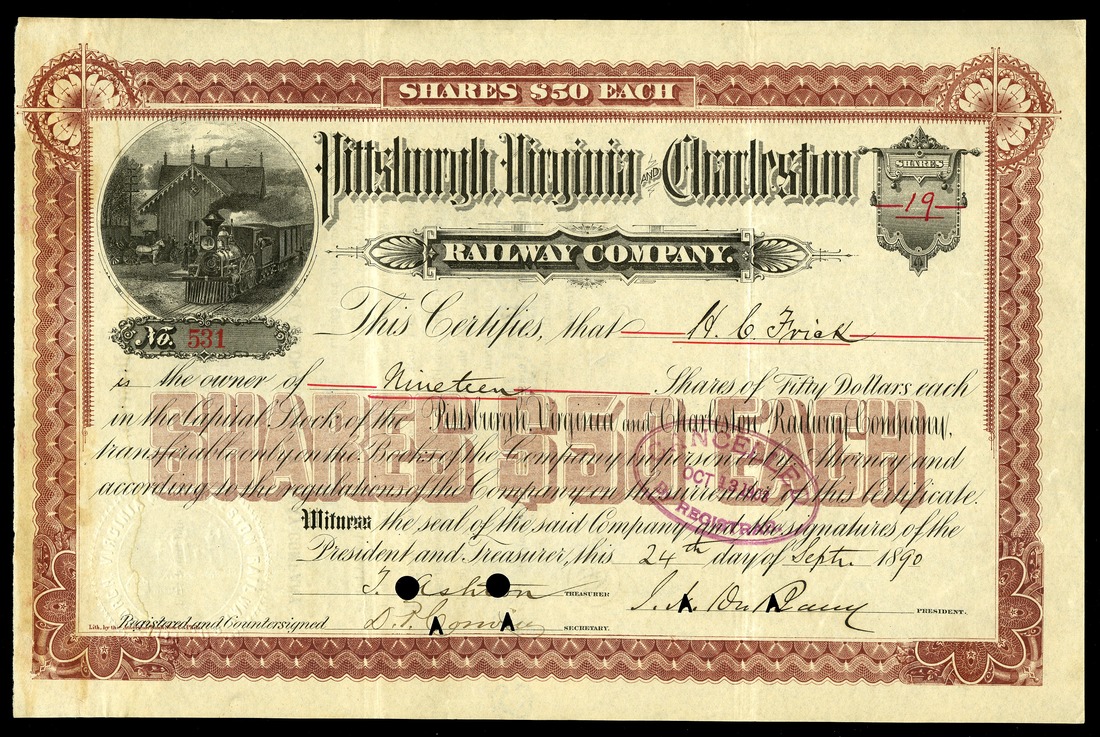 SHARES $50 EACH
Pittsburgh, Virginia AND Charleston
SHARES
19
RAILWAY COMPANY.
This Certifies, that H. C. Frick
No. 531
is the owner of Nineteen Shares of Fifty Dollars each
in the Capital Stock of the Pittsburgh, Virginia and Charleston Railway Company,
transferable only on the Books of the Company in person or by Attorney and
according to the regulations of the Company on the surrender of this certificate.
SHARES $50 EACH
CANCELLED
OCT 13
BY REGISTRAR
Witness the seal of the said Company and the signatures of the
President and Treasurer, this 24th day of Septr. 1890
T. Ashton TREASURER
PRESIDENT.
Registered and Countersigned
SECRETARY.
Lith. by